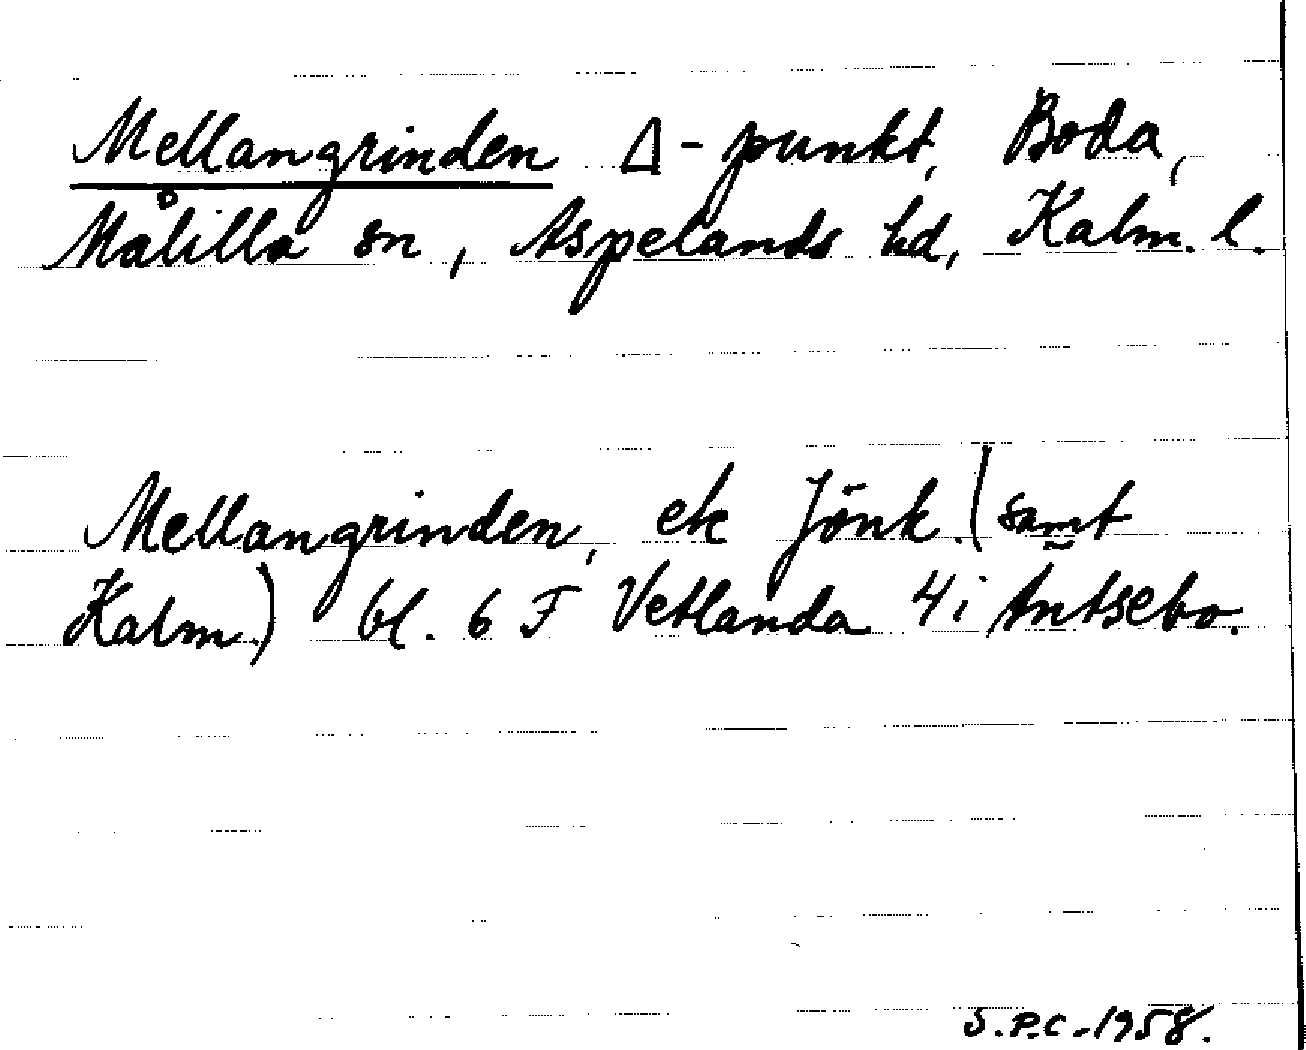 Mellangrinden Δ-punkt, Boda,
Målilla sn, Aspelands hd, Kalm. l.
Mellangrinden, ek Jönk. (samt
Kalm.) bl. 6 F Vetlanda 4i Äntsebo.
S.P.C. 1958.